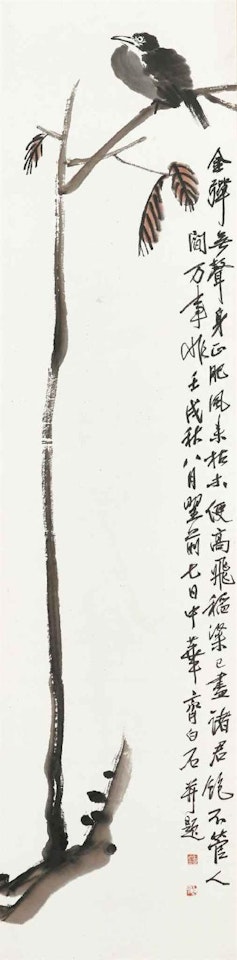 金彈無聲身正肥風來枯木便高飛稻粱已盡諸君飽不管人
間萬事非壬戌秋八月望前七日中華齊白石并題